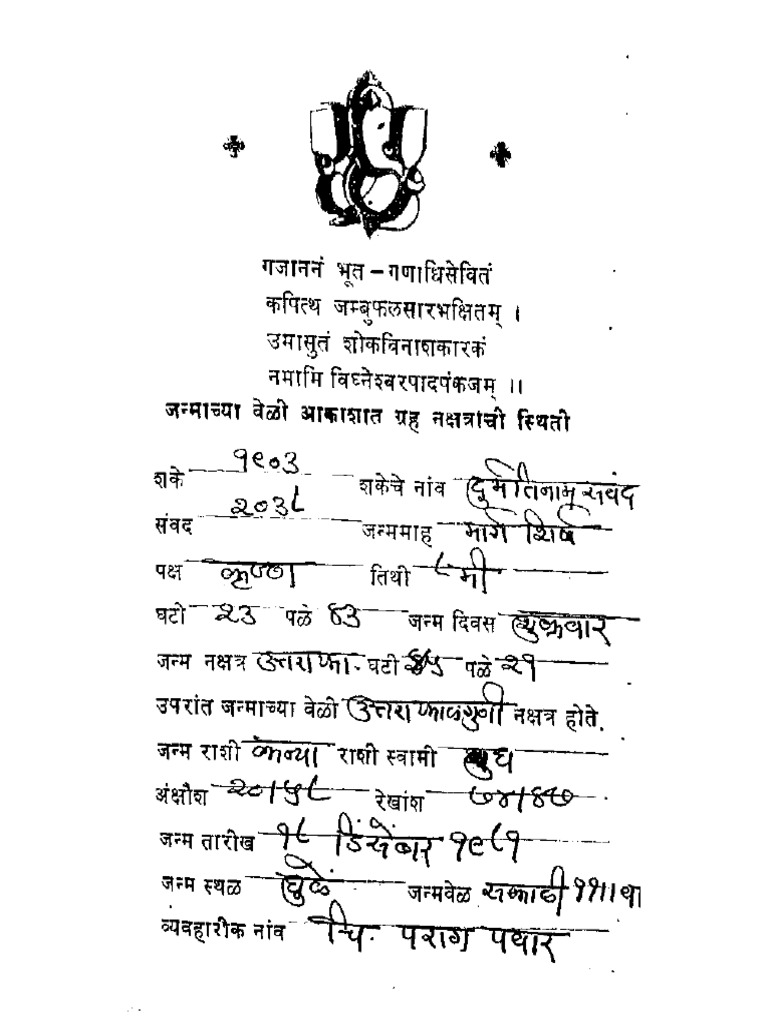 गजाननं भूत - गणाधिसेवितं
कपित्थ जम्बुफलसारभक्षितम् ।
उमासुतं शोकविनाशकारकं
नमामि विघ्नेश्वरपादपंकजम् ॥
जन्माच्या वेळी आकाशात ग्रह नक्षत्रांची स्थिती
शके १९०३ शकेचे नांव दुर्मतिनाम सवंद
संवद २०३८ जन्ममाह मार्ग शिर्ष
पक्ष कृष्ण तिथी ८मी
घटी २३ पळे ४३ जन्म दिवस शुक्रवार
जन्म नक्षत्र उत्तराफा. घटी ४५ पळे २१
उपरांत जन्माच्या वेळी उत्तराफाल्गुणी नक्षत्र होते.
जन्म राशी कन्या राशी स्वामी बुध
अंक्षौश २०।५८ रेखांश ७४।४७
जन्म तारीख १८ डिंसेंबर १९८१
जन्म स्थळ धुळे जन्मवेळ सकाळी ११॥ वा
व्यवहारीक नांव चि. पराग पवार